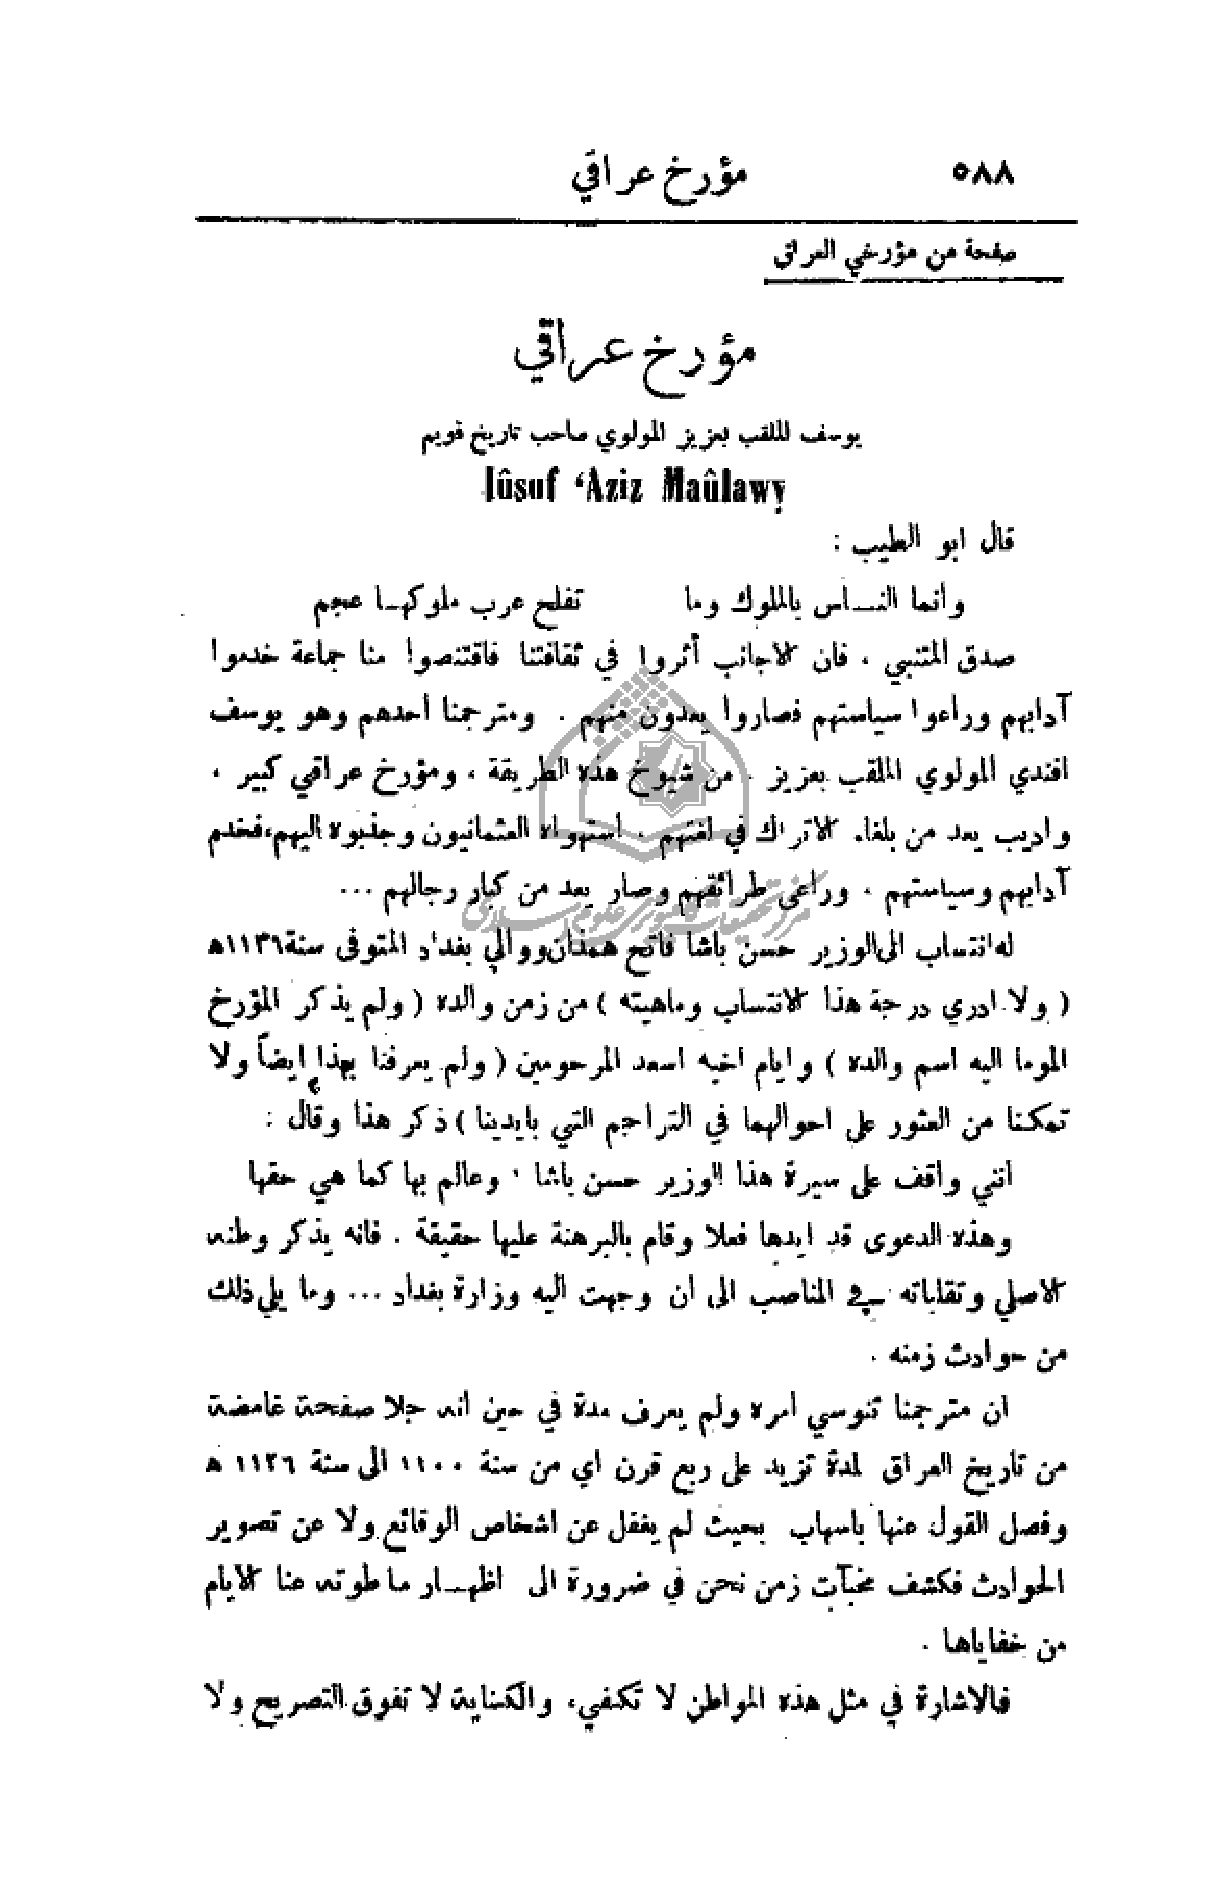 ٥٨٨ مؤرخ عراقي
صفحة من مؤرخي العراق
مؤرخ عراقي
يوسف الملقب بعزيز المولوي صاحب تاريخ قويم
Iûsuf ‘Aziz Maûlawy
قال ابو الطيب :
وأنما النـــاس بالملوك وما تفلح عرب ملوكهـا عجم
صدق المتنبي ، فان الاجانب أثروا في ثقافتنا فاقتنصوا منا جماعة خدموا
آدابهم وراعوا سياستهم فصاروا يعدون منهم . ومترجمنا أحدهم وهو يوسف
افندي المولوي الملقب بعزيز . من شيوخ هذه الطريقة ، ومؤرخ عراقي كبير ،
واديب يعد من بلغاء الاتراك في لغتهم . استهواه العثمانيون وجذبوه اليهم،فخدم
آدابهم وسياستهم ، وراعى طرائقهم وصار يعد من كبار رجالهم ...
له انتساب الى الوزير حسن باشا فاتح همذان ووالي بغداد المتوفى سنة ١١٣٦ه
( ولا ادري درجة هذا الانتساب وماهيته ) من زمن والده ( ولم يذكر المؤرخ
الموما اليه اسم والده ) وايام اخيه اسعد المرحومين ( ولم يعرفنا بهذا ايضاً ولا
تمكنا من العثور على احوالهما في التراجم التي بايدينا ) ذكر هذا وقال :
أنني واقف على سيرة هذا الوزير حسن باشا ، وعالم بها كما هي حقها
وهذه الدعوى قد ايدها فعلا وقام بالبرهنة عليها حقيقة . فانه يذكر وطنه
الاصلي وتقلباته في المناصب الى أن وجهت اليه وزارة بغداد ... وما يلي ذلك
من حوادث زمنه .
ان مترجمنا تنوسي أمره ولم يعرف مدة في حين أنه جلا صفحة غامضة
من تاريخ العراق لمدة تزيد على ربع قرن اي من سنة ١١٠٠ الى سنة ١١٣٦ ه
وفصل القول عنها باسهاب بحيث لم يغفل عن اشخاص الوقائع ولا عن تصوير
الحوادث فكشف مخبآت زمن نحن في ضرورة الى اظهـــار ما طوته عنا الايام
من خفاياها .
فالاشارة في مثل هذه المواطن لا تكفي، والكناية لا تفوق التصريح ولا